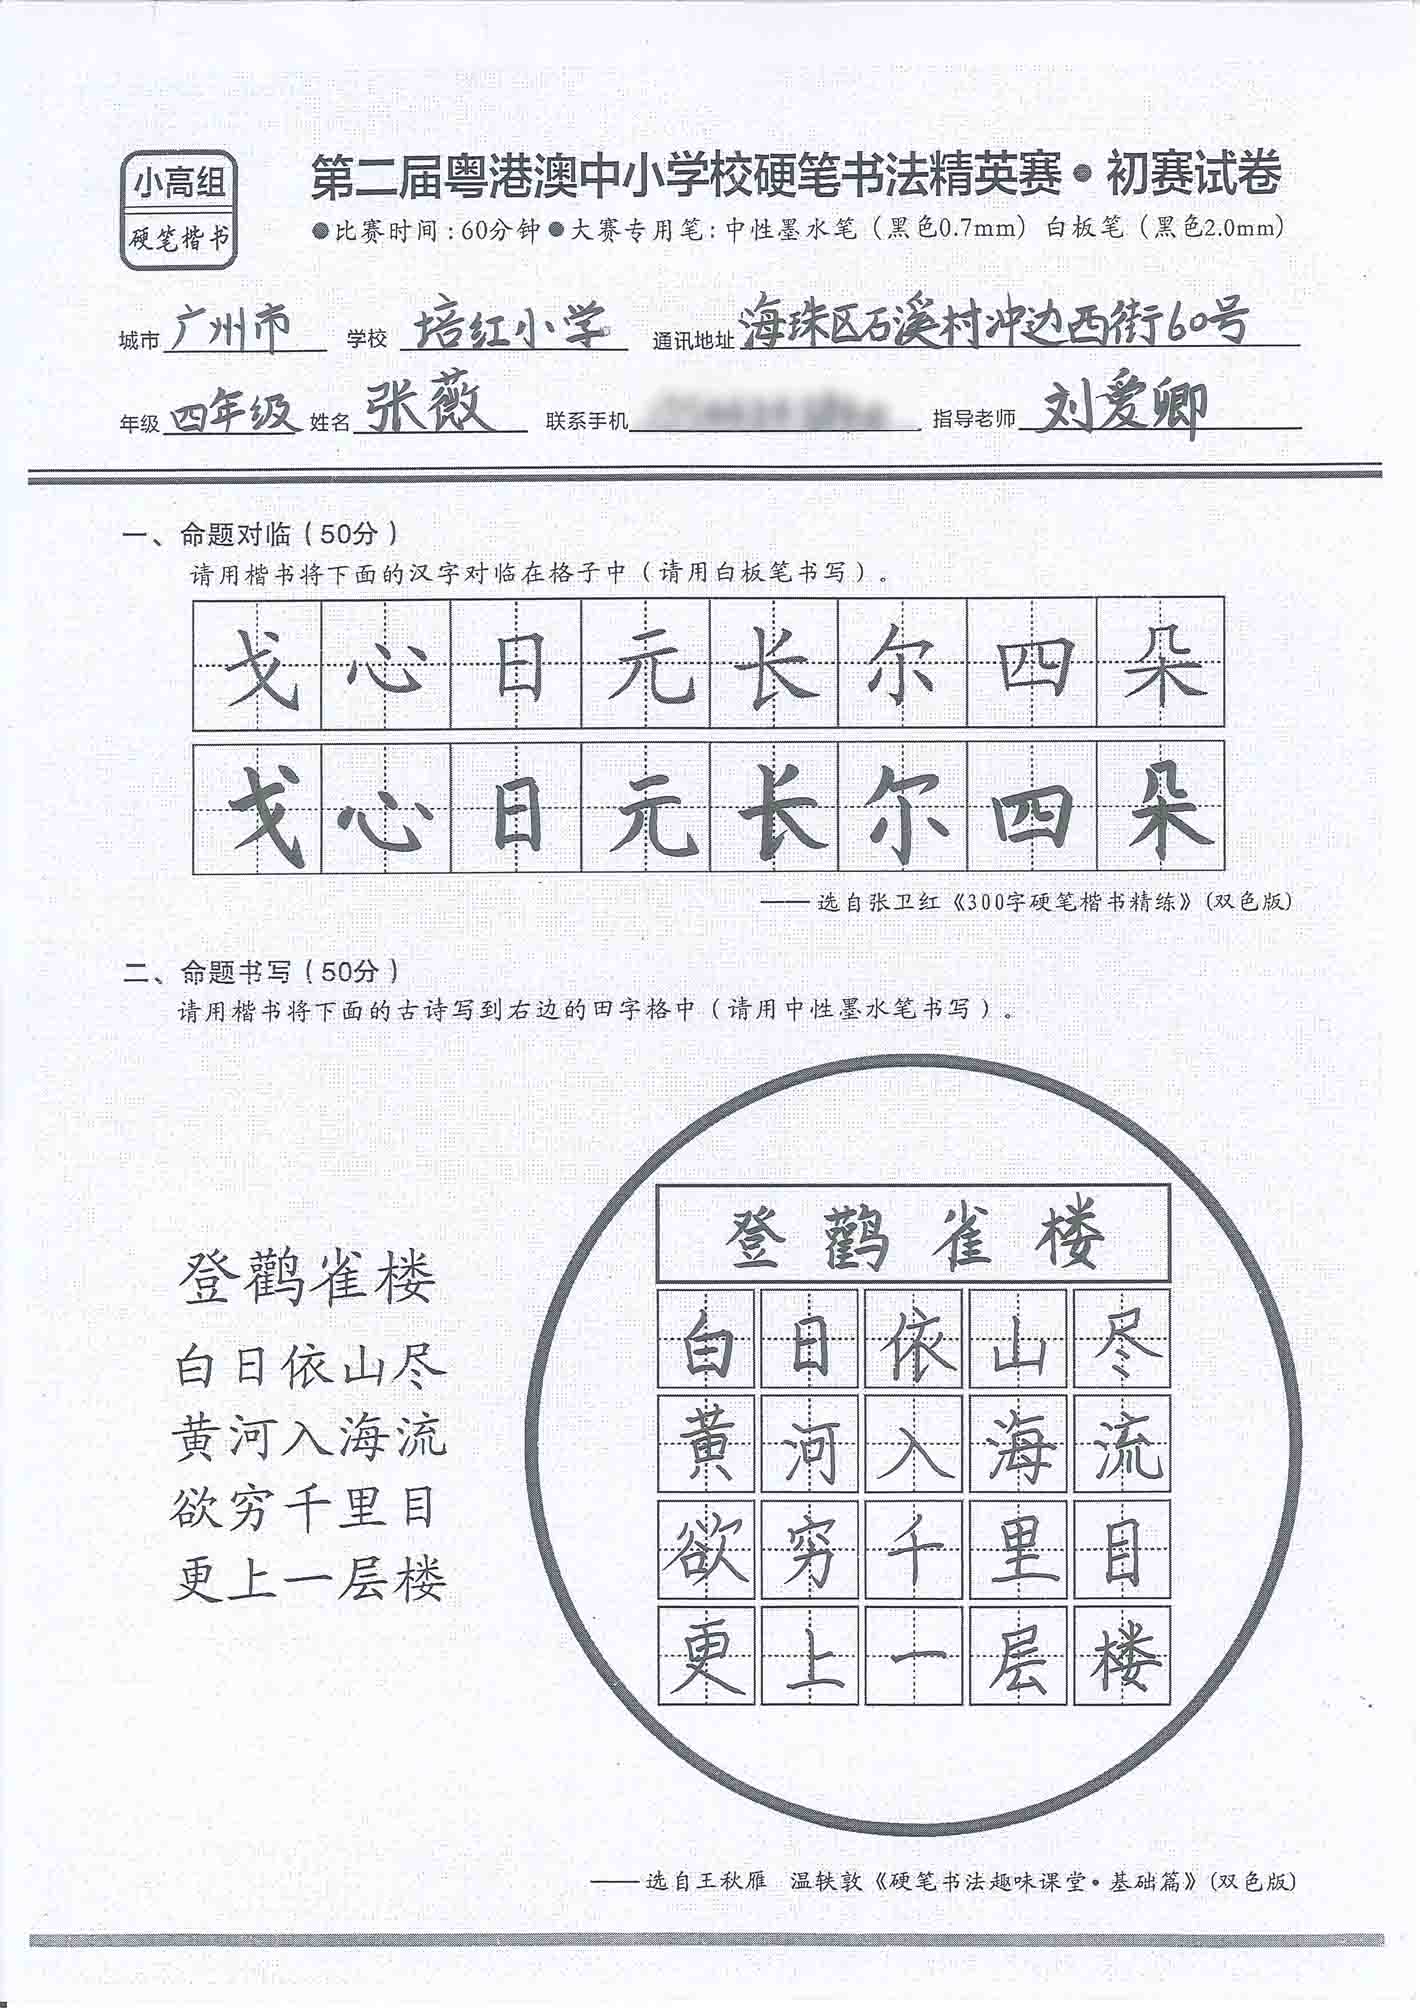 小高组
硬笔楷书
第二届粤港澳中小学校硬笔书法精英赛•初赛试卷
●比赛时间:60分钟●大赛专用笔:中性墨水笔（黑色0.7mm）白板笔（黑色2.0mm）
城市 广州市 学校 培红小学 通讯地址 海珠区石溪村冲边西街60号
年级 四年级 姓名 张薇 联系手机 指导老师 刘爱卿
一、命题对临（50分）
请用楷书将下面的汉字对临在格子中（请用白板笔书写）。
戈心日元长尔四朵
戈心日元长尔四朵
——选自张卫红《300字硬笔楷书精练》(双色版)
二、命题书写（50分）
请用楷书将下面的古诗写到右边的田字格中（请用中性墨水笔书写）。
登鹳雀楼
白日依山尽
黄河入海流
欲穷千里目
更上一层楼
登鹳雀楼
白日依山尽
黄河入海流
欲穷千里目
更上一层楼
——选自王秋雁 温轶敦《硬笔书法趣味课堂•基础篇》(双色版)